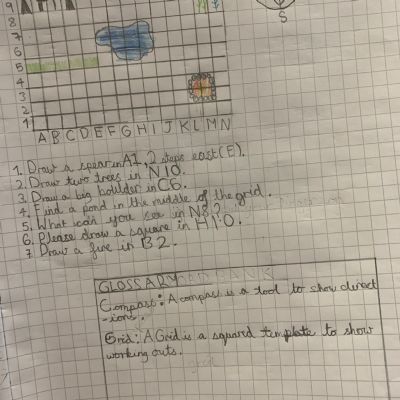 9
8
7
6
5
4
3
2
1
A B C D E F G H I J K L M N
S
1. Draw a spear in A1, 2 steps east (E).
2. Draw two trees in N10.
3. Draw a big bouldor in C6.
4. Find a pond in the middle of the grid.
5. What can you see in N8?
6. Please draw a square in H10.
7. Draw a fire in B2.
GLOSSARY
Compass: A compass is a tool to show direct
-ions.
Grid: A Grid is a squared template to show
working outs.